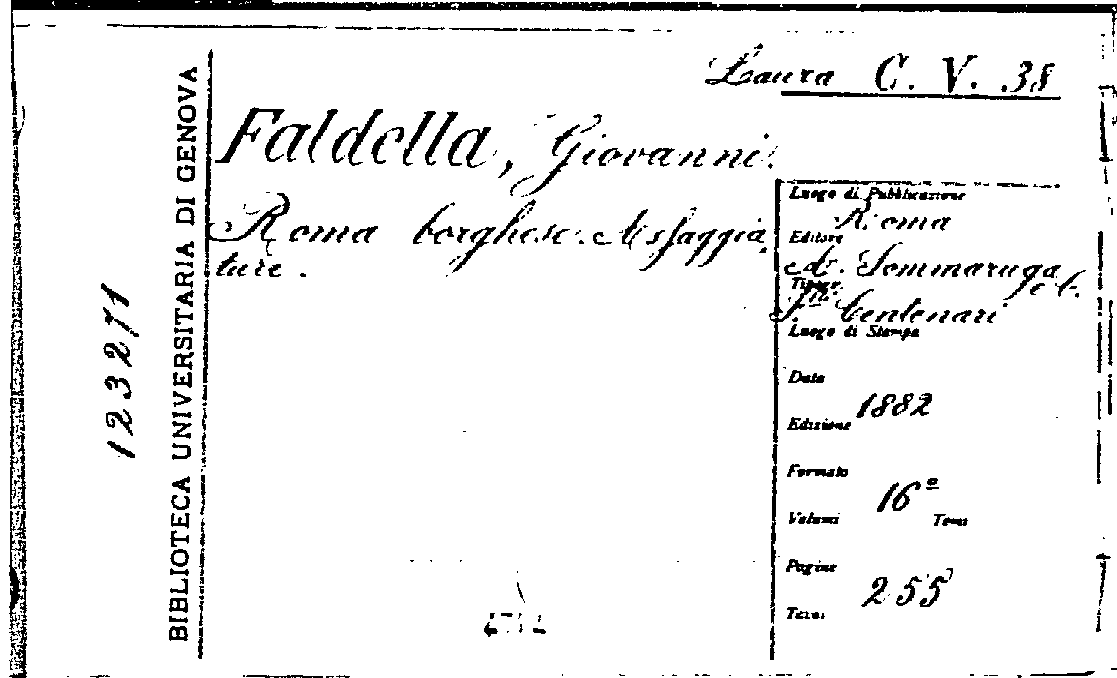 Laura C. V. 38
Faldella, Giovanni.
Roma borghese. Assaggia,
ture.
BIBLIOTECA UNIVERSITARIA DI GENOVA
123271
Luogo di Pubblicazione
Roma
Editore
A. Sommaruga e C.
Tip.
Centenari
Luogo di Stampa
Data
1882
Edizione
Formato
16º
Volumi Tomi
Pagine
255
Tavol